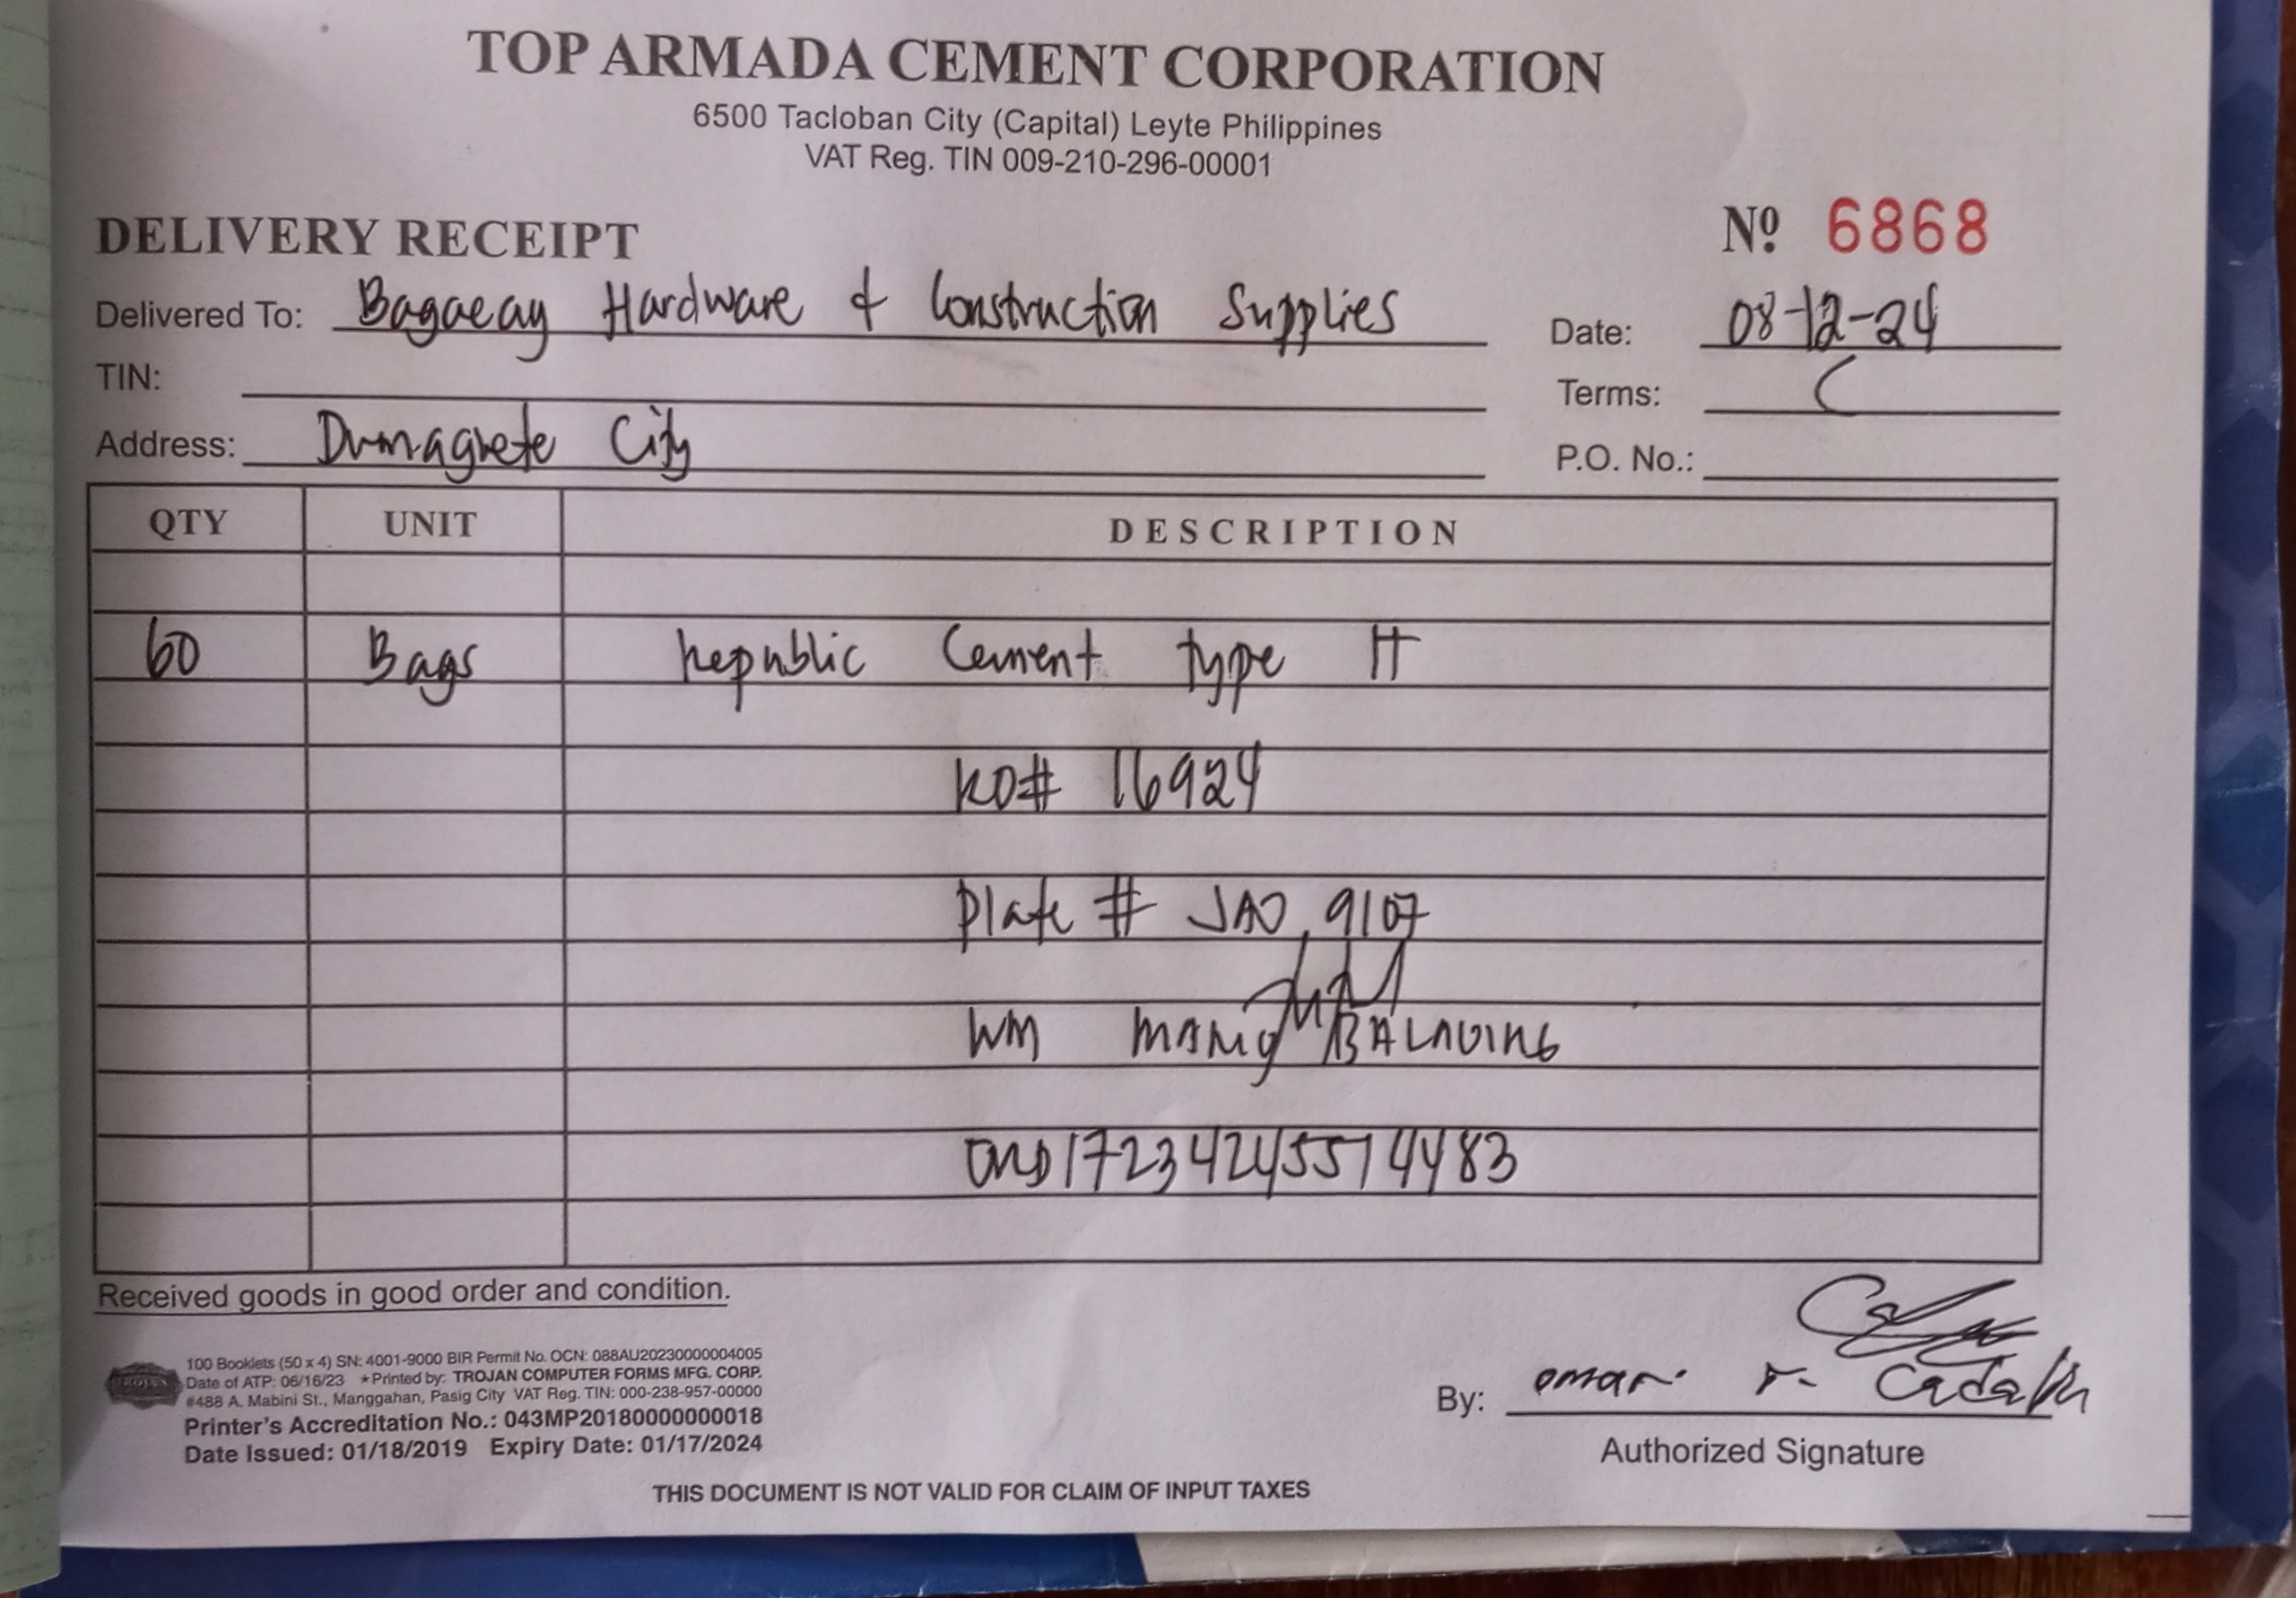 TOP ARMADA CEMENT CORPORATION
6500 Tacloban City (Capital) Leyte Philippines
VAT Reg. TIN 009-210-296-00001
DELIVERY RECEIPT
Nº 6868
Delivered To: Bagacay Hardware & Construction Supplies
Date: 08-12-24
TIN:
Terms: C
Address: Dumaguete City
P.O. No.:
QTY UNIT DESCRIPTION
60 Bags Republic Cement type
KO# 16924
Plate # JAO 9107
WM
Received goods in good order and condition.
100 Booklets (50 x 4) SN: 4001-9000 BIR Permit No. OCN: 088AU20230000004005
Date of ATP: 06/16/23 ★Printed by: TROJAN COMPUTER FORMS MFG. CORP.
#488 A. Mabini St., Manggahan, Pasig City VAT Reg. TIN: 000-238-957-00000
Printer's Accreditation No.: 043MP20180000000018
Date Issued: 01/18/2019 Expiry Date: 01/17/2024
By: omar
Authorized Signature
THIS DOCUMENT IS NOT VALID FOR CLAIM OF INPUT TAXES